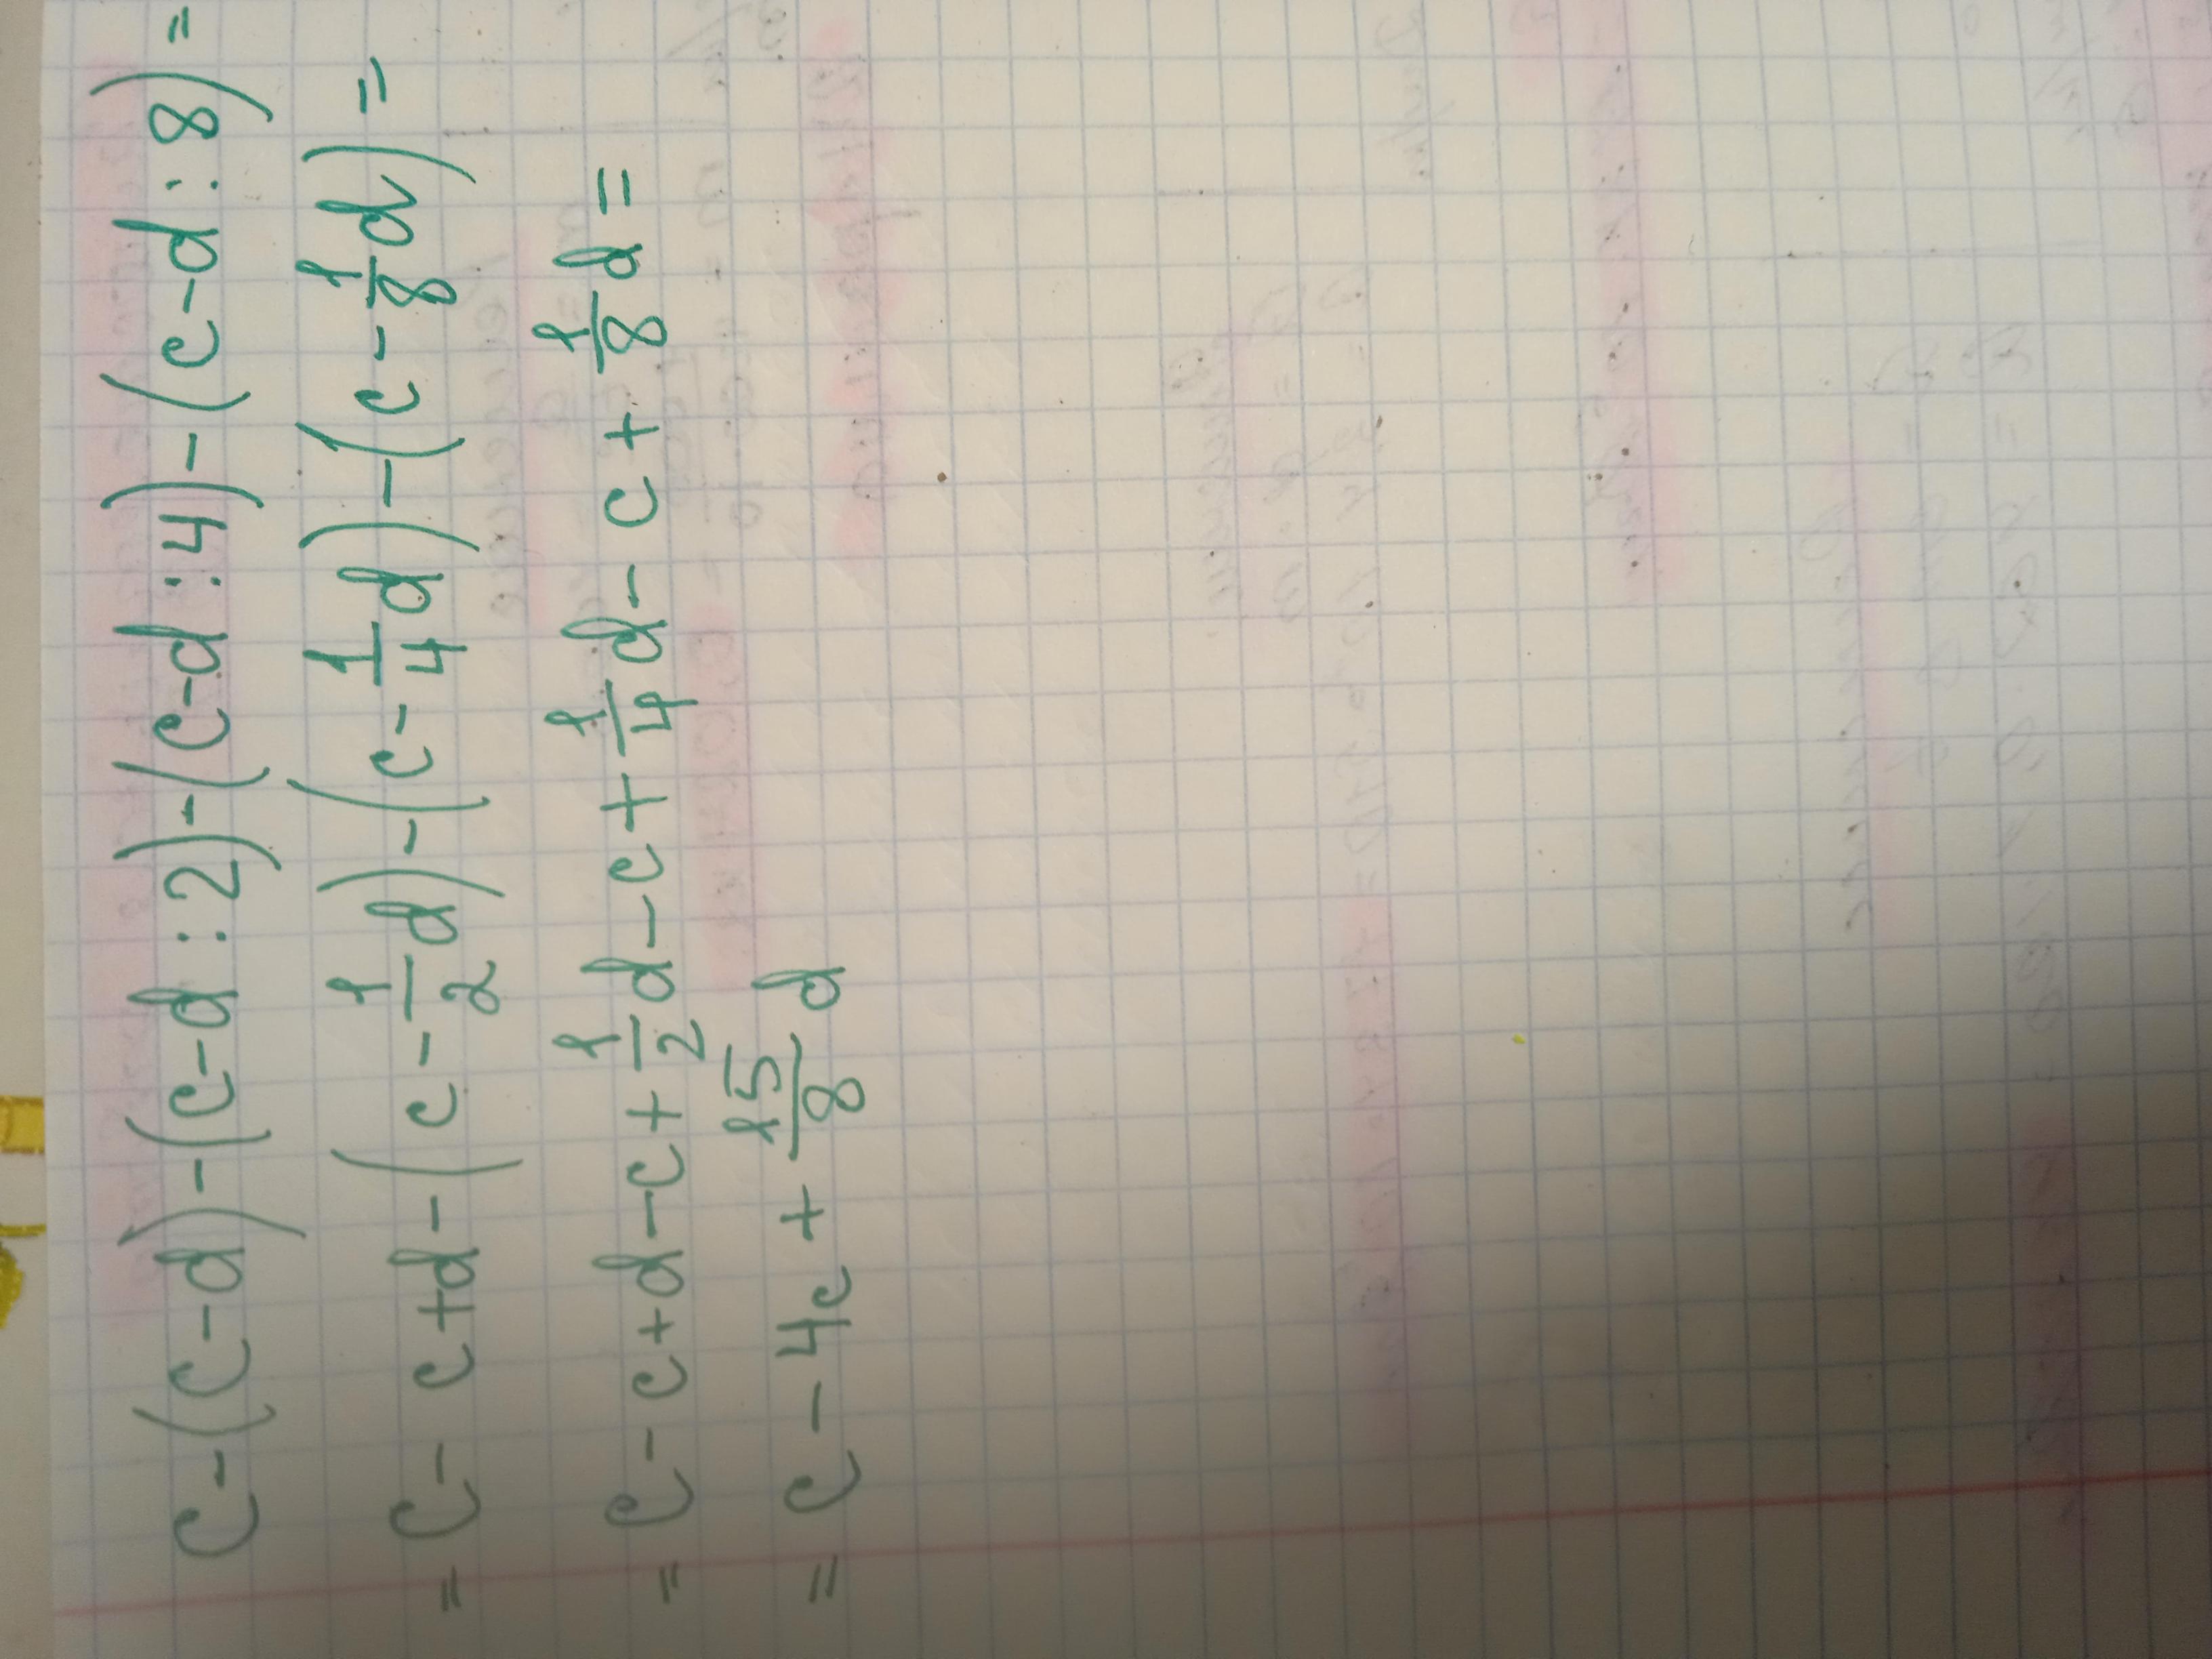 c-(c-d)-(c-d:2)-(c-d:4)-(c-d:8)=
=c-c+d-(c-1/2d)-(c-1/4d)-(c-1/8d)=
=c-c+d-c+1/2d-c+1/4d-c+1/8d=
=c-4c+15/8d